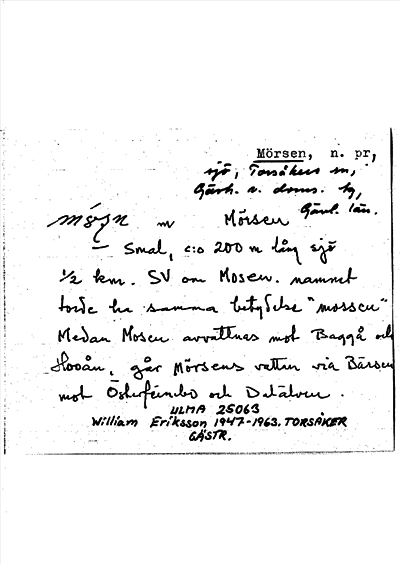 Mörsen, n. pr,
sjö, Torsåkers sn,
Gävl. län.
m Mörsen
Smal, c:a 200 m lång sjö
½ km. SV om Mosen. namnet
torde ha samma betydelse "mossen"
Medan Mosen avvattnas mot Baggå och
Hoån, går Mörsens vatten via Bärsen
mot Österfärnebo och Dalälven.
ULMA 25063
William Eriksson 1947-1963. TORSÅKER
GÄSTR.